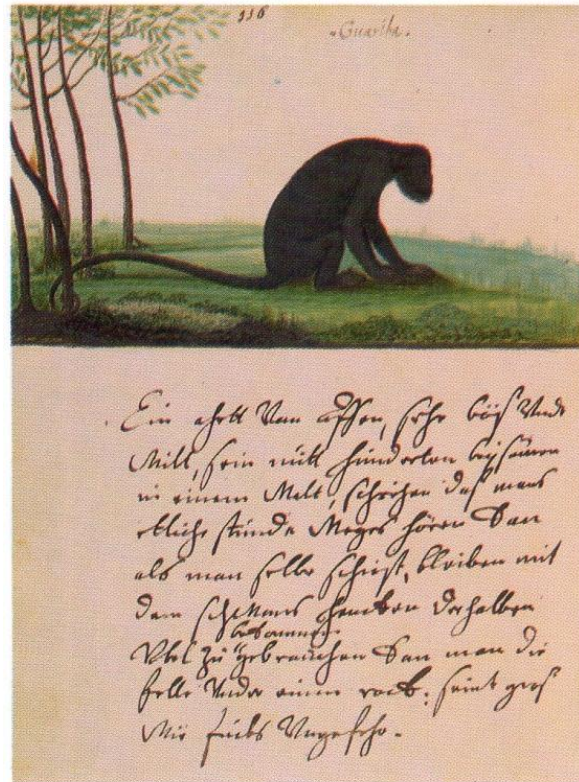 336
Guariba.
Ein ahrtt Van affen, sehr böß Vnd
Willt, sein mitt hunderten beysamen
in einem Walt, schreyen daß mans
etliche stunde Weges hören kan
als man selbe schiest, bleiben mit
dem schWans hencken derhalben
bekommen
Vbel zu gebrauchen kan man die
felle Vnder einen rock: seint groß
Wie füchs Vngefehr.